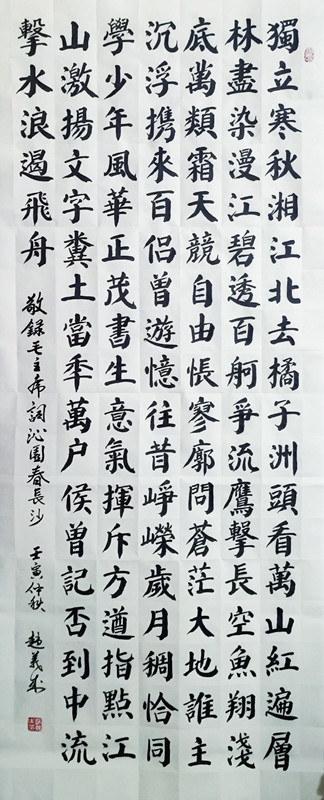 獨立寒秋湘江北去橘子洲頭看萬山紅遍層
林盡染漫江碧透百舸爭流鷹擊長空魚翔淺
底萬類霜天競自由悵寥廓問蒼茫大地誰主
沉浮携來百侣曾遊憶往昔崢嶸歲月稠恰同
學少年風華正茂書生意氣揮斥方遒指點江
山激揚文字糞土當秊萬户侯曾記否到中流
擊水浪遏飛舟
敬錄毛主席詞沁園春長沙 壬寅仲秋 趙義